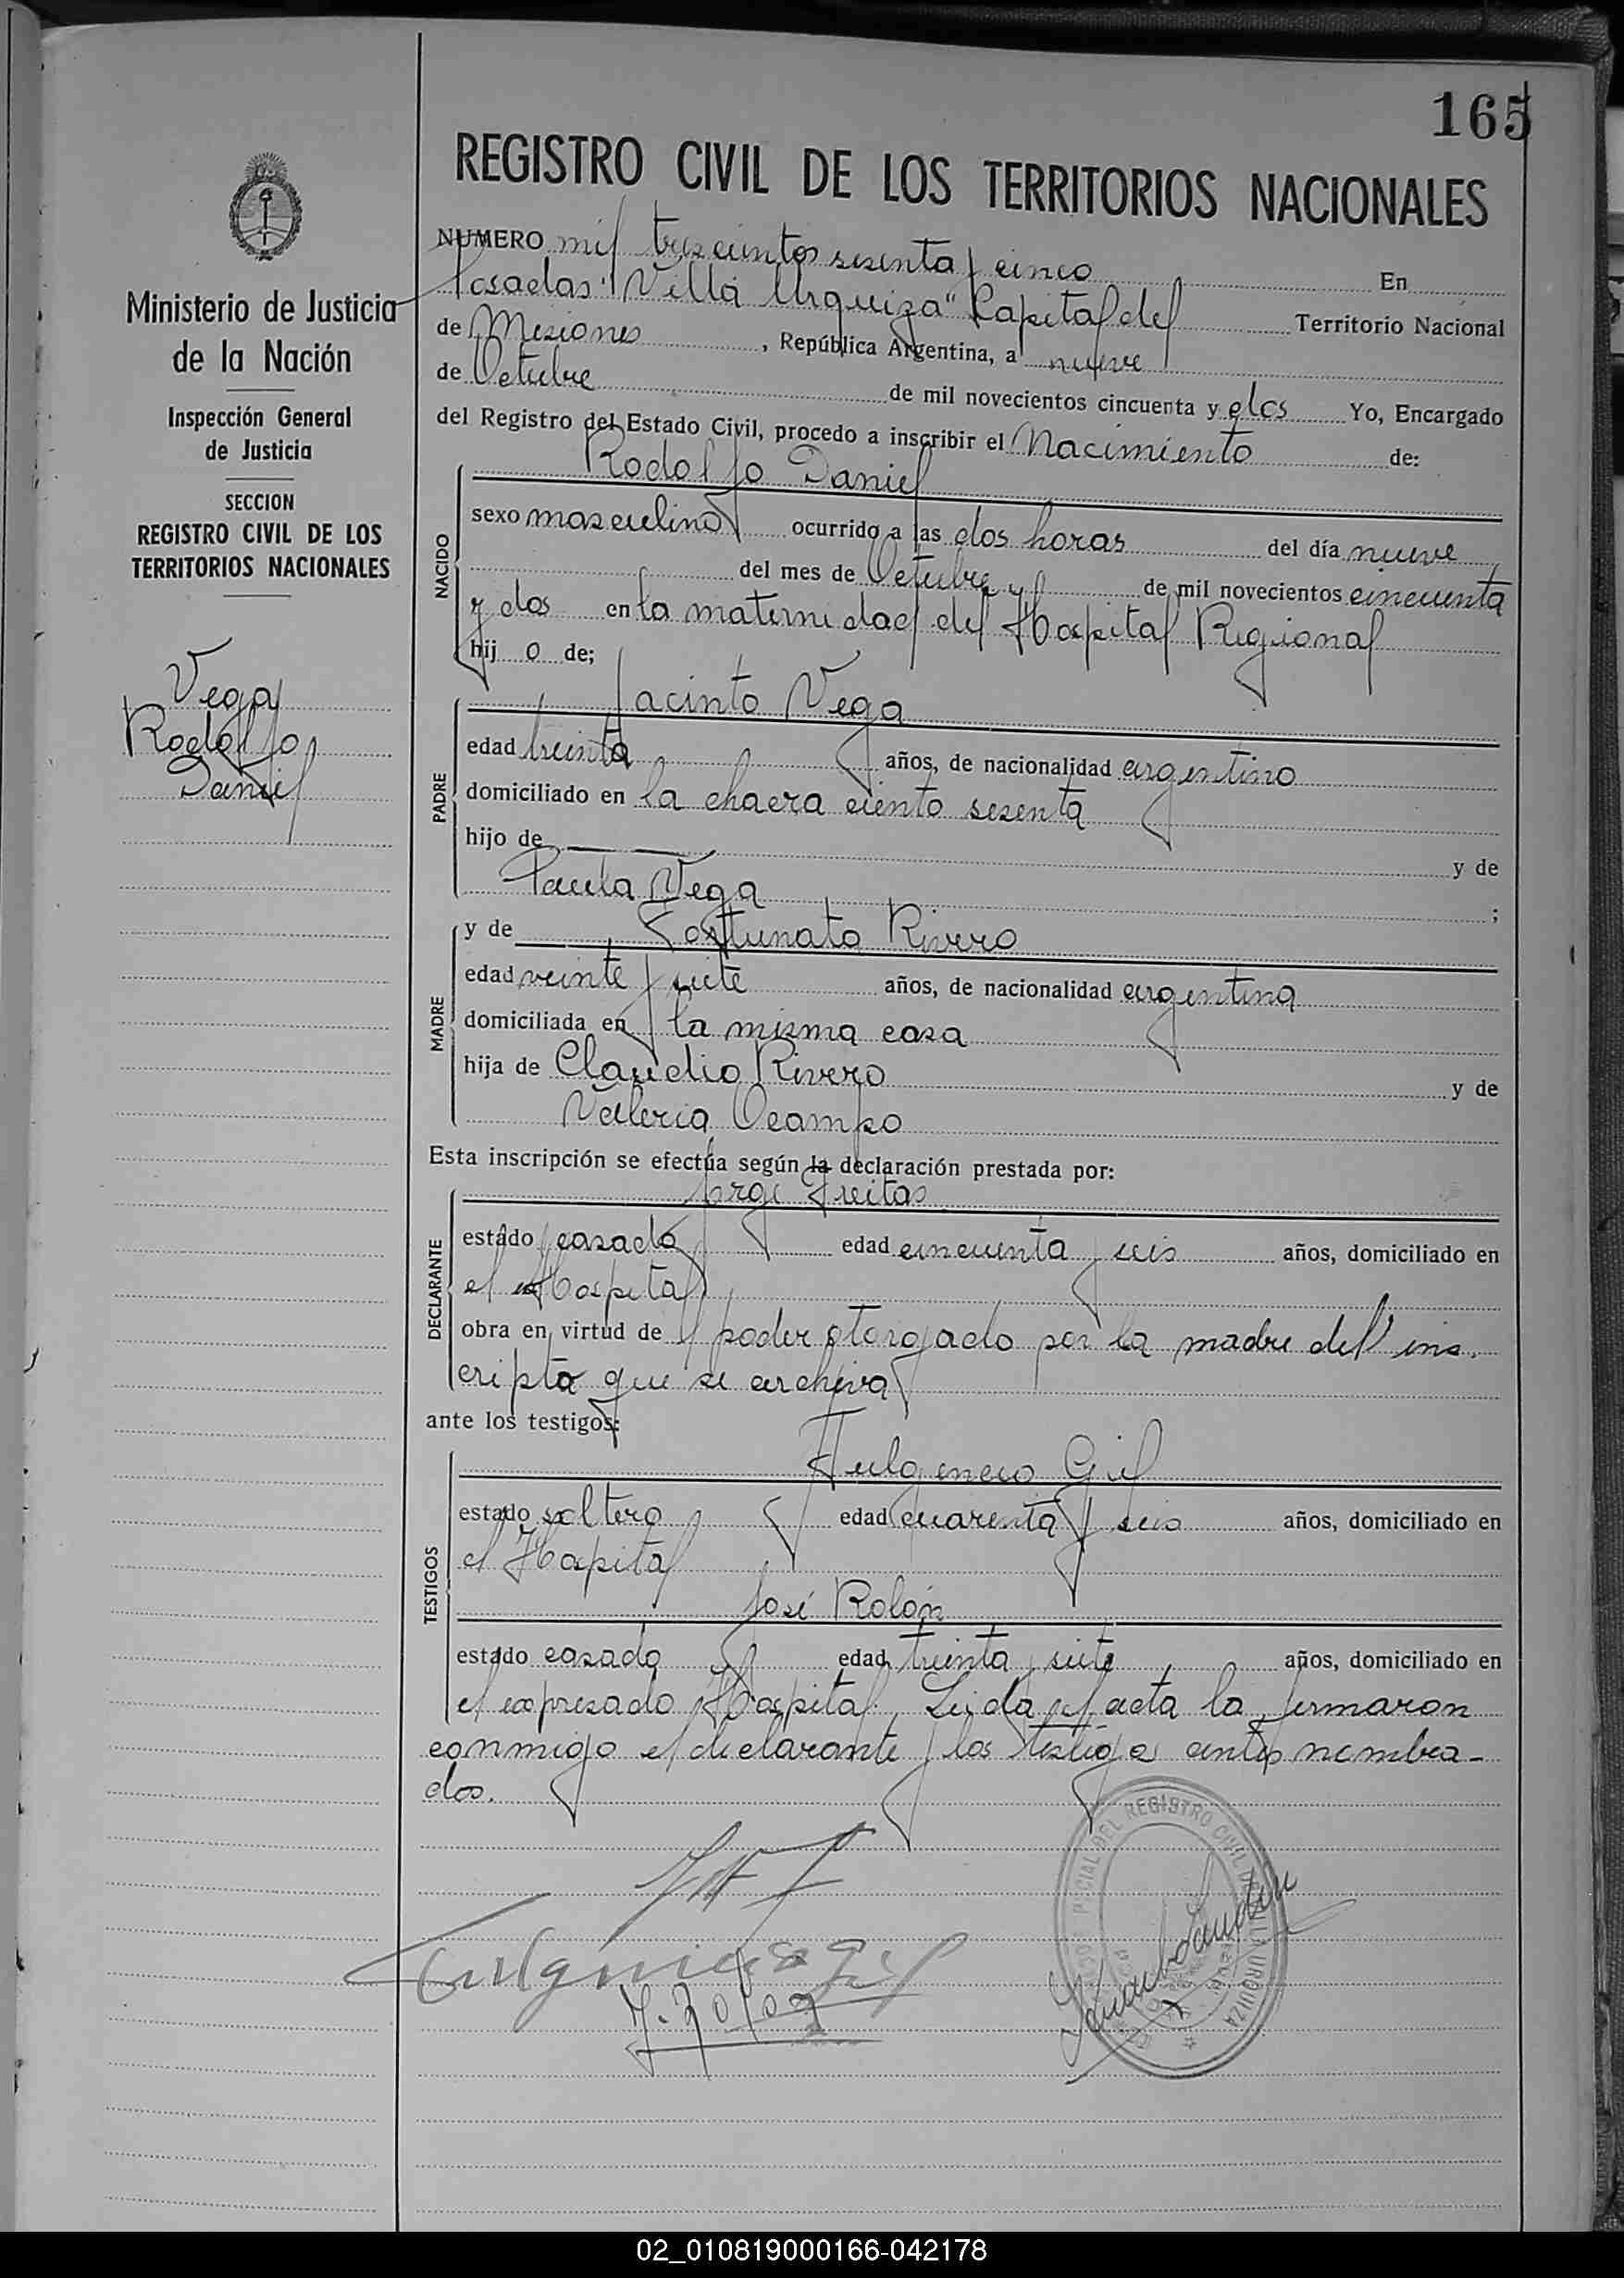 165
REGISTRO CIVIL DE LOS TERRITORIOS NACIONALES
Ministerio de Justicia
de la Nación
Inspección General
de Justicia
SECCION
REGISTRO CIVIL DE LOS
TERRITORIOS NACIONALES
Vega
Rodolfo
Daniel
NUMERO mil trescientos sesenta y cinco En
Posadas "Villa Urquiza" Capital del Territorio Nacional
de Misiones, República Argentina, a nueve
de Octubre de mil novecientos cincuenta y dos Yo, Encargado
del Registro del Estado Civil, procedo a inscribir el Nacimiento de:
Rodolfo Daniel
NACIDO
sexo masculino ocurrido a las dos horas del día nueve
del mes de Octubre de mil novecientos cincuenta
y dos en la maternidad del Hospital Regional
hijo de;
PADRE
Jacinto Vega
edad treinta años, de nacionalidad argentino
domiciliado en la chacra ciento sesenta
hijo de y de
Paula Vega ;
MADRE
y de Fortunata Rivero
edad veinte y siete años, de nacionalidad argentina
domiciliada en la misma casa
hija de Claudio Rivero y de
Valeria Ocampo
Esta inscripción se efectúa según la declaración prestada por:
DECLARANTE
Jorge Freitas
estado casado edad cincuenta y seis años, domiciliado en
el Hospital
obra en virtud de el poder otorgado por la madre del ins.
cripto que se archiva
ante los testigos:
TESTIGOS
Fulgencio Gil
estado soltero edad cuarenta y seis años, domiciliado en
el Hospital
José Rolón
estado casado edad treinta y siete años, domiciliado en
el expresado Hospital. Leida el acta la firmaron
conmigo el declarante y los testigos antes nombra-
dos.
Fulgencio Gil
REGISTRO CIVIL DE VILLA URQUIZA
02_010819000166-042178